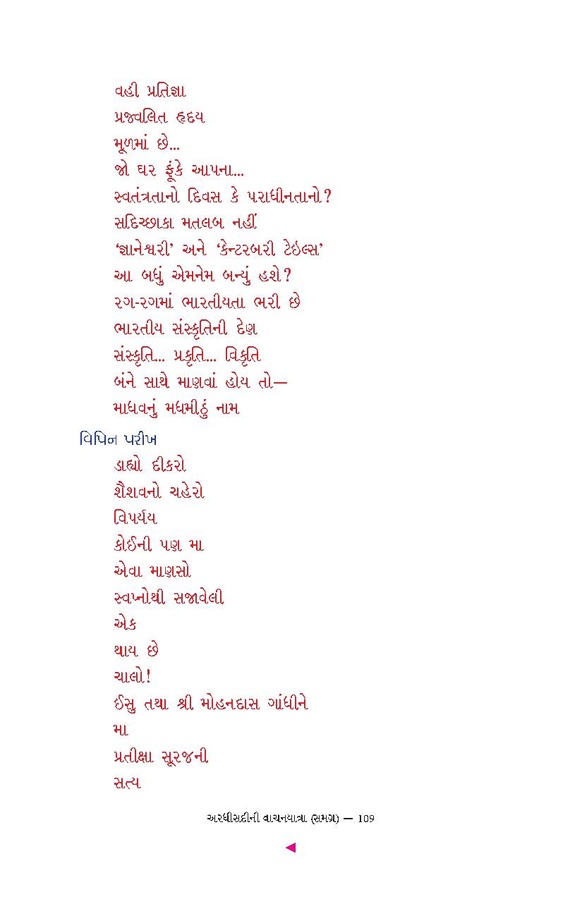 વહી પ્રતિજ્ઞા
પ્રજ્વલિત હૃદય
મૂળમાં છે...
જો ઘર ફૂંકે આપના...
સ્વતંત્રતાનો દિવસ કે પરાધીનતાનો?
સદિચ્છાકા મતલબ નહીં
‘જ્ઞાનેશ્વરી’ અને ‘કેન્ટરબરી ટેઇલ્સ’
આ બધું એમનેમ બન્યું હશે?
રગ-રગમાં ભારતીયતા ભરી છે
ભારતીય સંસ્કૃતિની દેણ
સંસ્કૃતિ... પ્રકૃતિ... વિકૃતિ
બંને સાથે માણવાં હોય તો—
માધવનું મધમીઠું નામ
વિપિન પરીખ
ડાહ્યો દીકરો
શૈશવનો ચહેરો
વિપર્યય
કોઈની પણ મા
એવા માણસો
સ્વપ્નોથી સજાવેલી
એક
થાય છે
ચાલો!
ઈસુ તથા શ્રી મોહનદાસ ગાંધીને
મા
પ્રતીક્ષા સૂરજની
સત્ય
અરધીસદીની વાચનયાત્રા (સમગ્ર) — 109